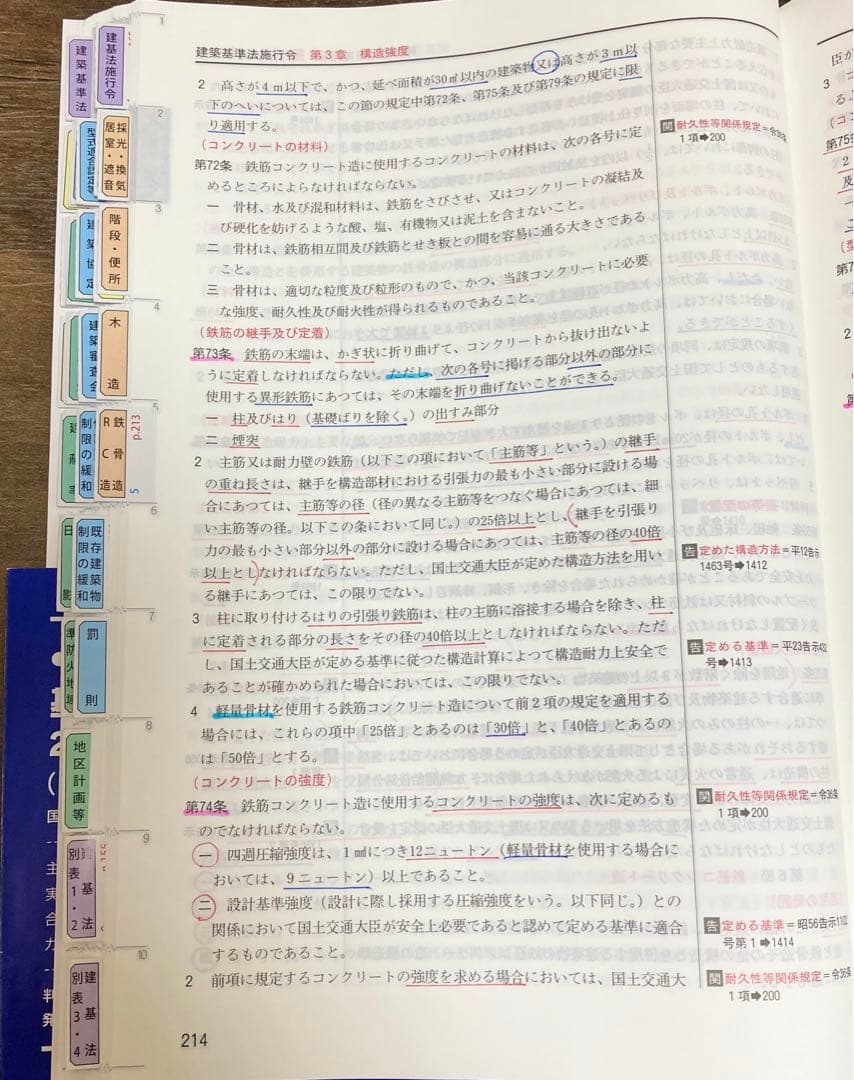 建築基準法施行令　第3章　構造強度
2　高さが4m以下で、かつ、延べ面積が30㎡以内の建築物又は高さが3m以
下のへいについては、この節の規定中第72条、第75条及び第79条の規定に限
り適用する。
(コンクリートの材料)
第72条　鉄筋コンクリート造に使用するコンクリートの材料は、次の各号に定
めるところによらなければならない。
一　骨材、水及び混和材料は、鉄筋をさびさせ、又はコンクリートの凝結及
び硬化を妨げるような酸、塩、有機物又は泥土を含まないこと。
二　骨材は、鉄筋相互間及び鉄筋とせき板との間を容易に通る大きさである
こと。
三　骨材は、適切な粒度及び粒形のもので、かつ、当該コンクリートに必要
な強度、耐久性及び耐火性が得られるものであること。
(鉄筋の継手及び定着)
第73条　鉄筋の末端は、かぎ状に折り曲げて、コンクリートから抜け出ないよ
うに定着しなければならない。ただし、次の各号に掲げる部分以外の部分に
使用する異形鉄筋にあつては、その末端を折り曲げないことができる。
一　柱及びはり(基礎ばりを除く。)の出すみ部分
二　煙突
2　主筋又は耐力壁の鉄筋(以下この項において「主筋等」という。)の継手
の重ね長さは、継手を構造部材における引張力の最も小さい部分に設ける場
合にあつては、主筋等の径(径の異なる主筋等をつなぐ場合にあつては、細
い主筋等の径。以下この条において同じ。)の25倍以上とし、継手を引張り
力の最も小さい部分以外の部分に設ける場合にあつては、主筋等の径の40倍
以上としなければならない。ただし、国土交通大臣が定めた構造方法を用い
る継手にあつては、この限りでない。
3　柱に取り付けるはりの引張り鉄筋は、柱の主筋に溶接する場合を除き、柱
に定着される部分の長さをその径の40倍以上としなければならない。ただ
し、国土交通大臣が定める基準に従つた構造計算によつて構造耐力上安全で
あることが確かめられた場合においては、この限りでない。
4　軽量骨材を使用する鉄筋コンクリート造について前2項の規定を適用する
場合には、これらの項中「25倍」とあるのは「30倍」と、「40倍」とあるの
は「50倍」とする。
(コンクリートの強度)
第74条　鉄筋コンクリート造に使用するコンクリートの強度は、次に定めるも
のでなければならない。
一　四週圧縮強度は、1㎟につき12ニュートン(軽量骨材を使用する場合に
おいては、9ニュートン)以上であること。
二　設計基準強度(設計に際し採用する圧縮強度をいう。以下同じ。)との
関係において国土交通大臣が安全上必要であると認めて定める基準に適合
するものであること。
2　前項に規定するコンクリートの強度を求める場合においては、国土交通大
214
関 耐久性等関係規定=令36条
1項➡200
告 定めた構造方法=平12告示
1463号➡1412
告 定める基準=平23告示432
号➡1413
関 耐久性等関係規定=令36条
1項➡200
告 定める基準=昭56告示1102
号第1➡1414
関 耐久性等関係規定=令36条
1項➡200
建築基準法
建基法施行令
型式適合認定等
採光・換気
居室・遮音
建築協定
階段・便所
建築審査会
木造
制限の緩和
鉄骨造
RC造
p.213
5
既存建築物
制限の緩和
日影
準防火地域
罰則
地区計画等
建基法
別表1・2
建基法
別表3・4
1
2
3
4
5
6
7
8
9
10